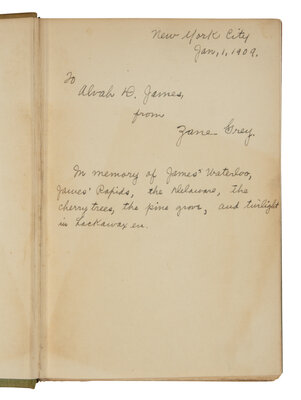 New York City
Jan, 1, 1909.
To
Alvah D. James,
from
Zane Grey.
In memory of James' Waterloo,
James' Rapids, the Delaware, the
cherry trees, the pine grove, and twilight
in Lackawaxen.